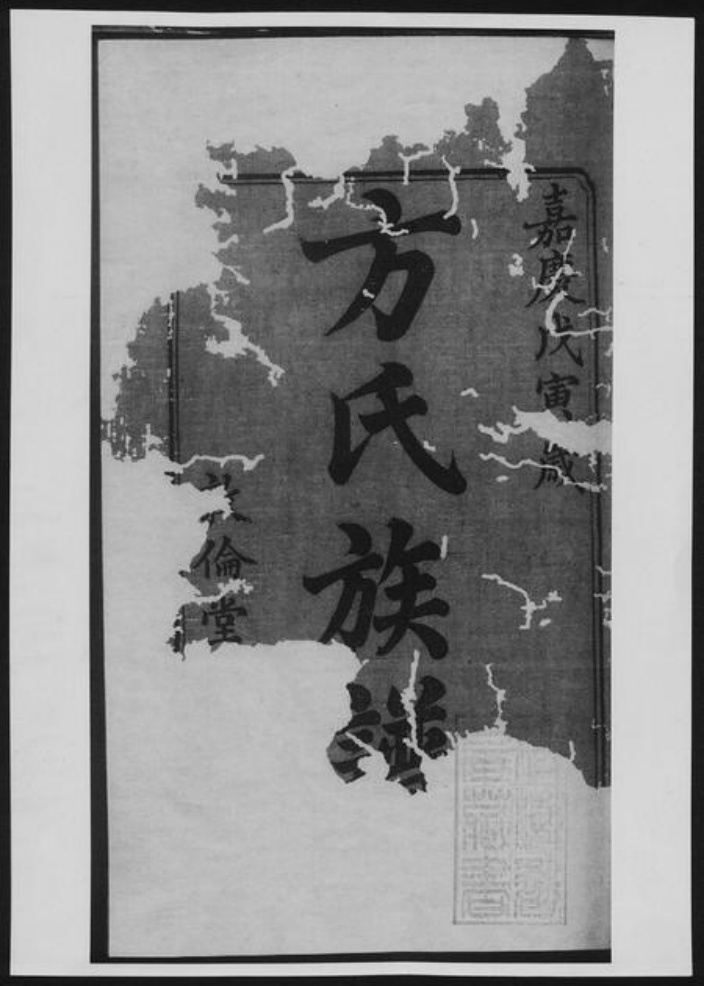 嘉慶戊寅歲
方氏族譜
倫堂